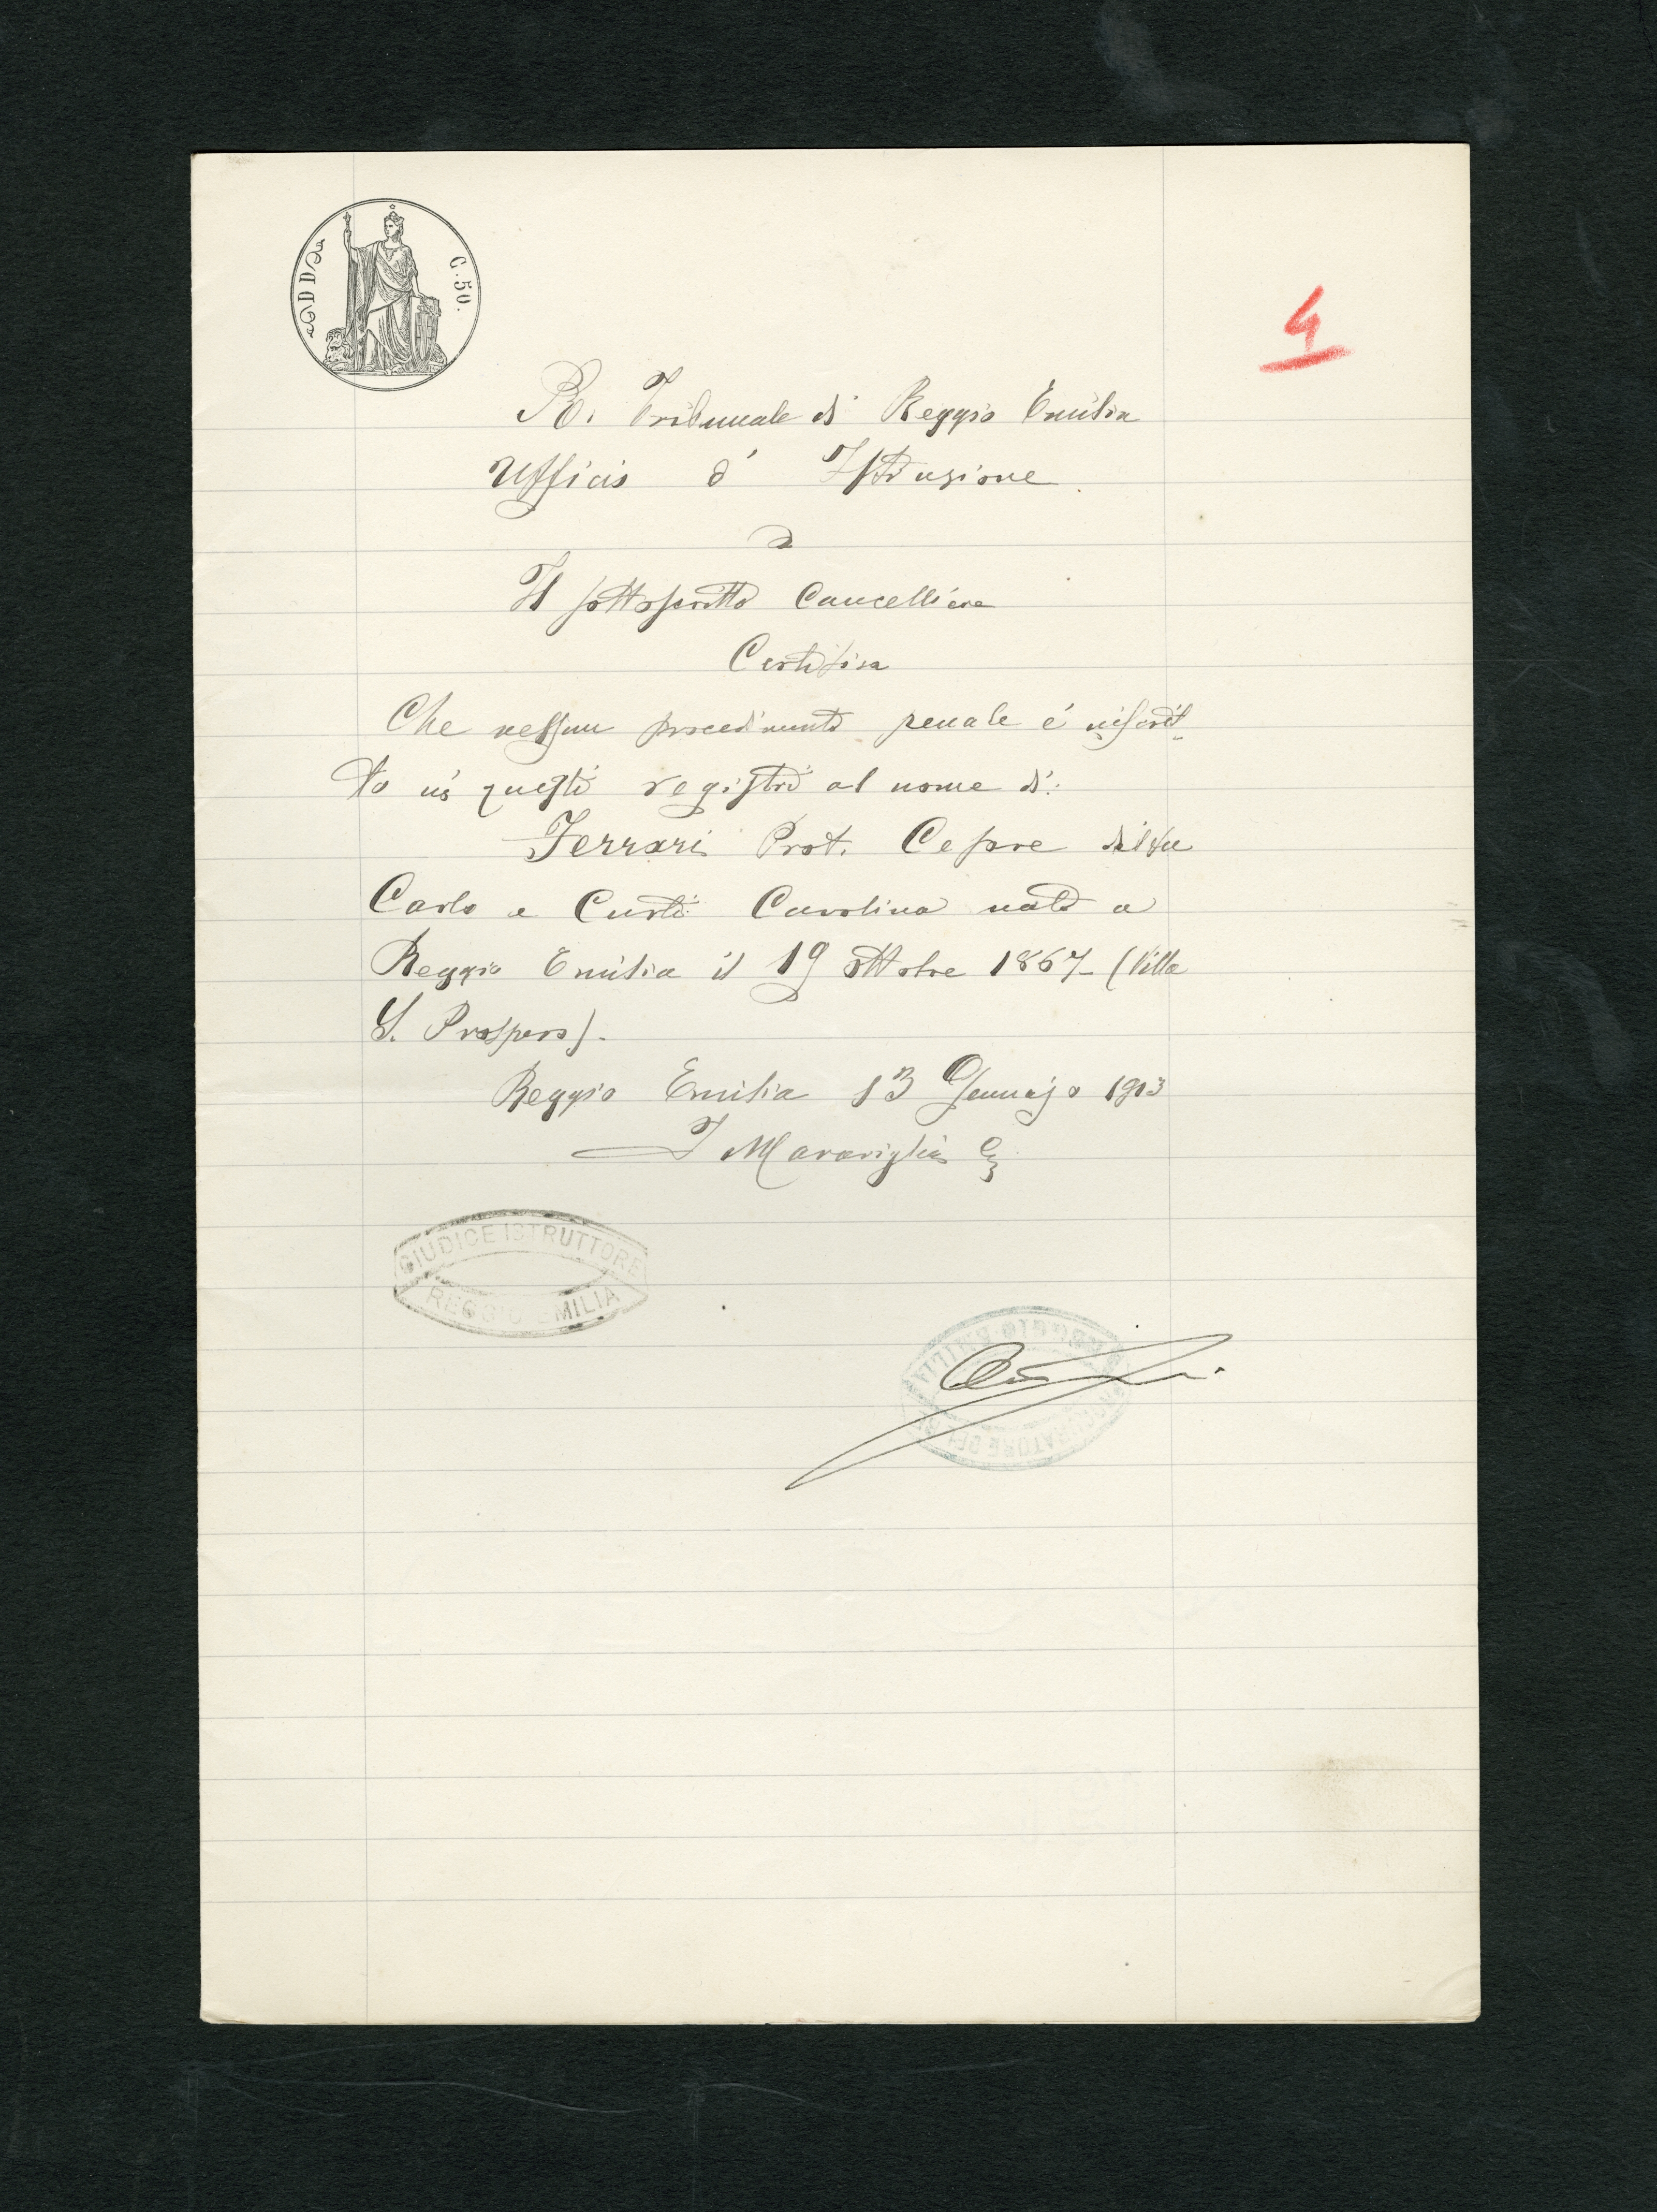 D D
C. 50.
4
R. Tribunale di Reggio Emilia
Ufficio d' Istruzione
Il sottoscritto Cancelliere
Certifica
Che nessun procedimento penale é inscrit-
to in questi registri al nome di:
Ferrari Prof. Cesare del fu
Carlo e Curti Carolina nato a
Reggio Emilia il 19 ottobre 1867 (Villa
S. Prospero).
Reggio Emilia 13 Gennajo 1913
Maraviglia
GIUDICE ISTRUTTORE
REGGIO EMILIA
PROCURATORE DEL RE
REGGIO EMILIA